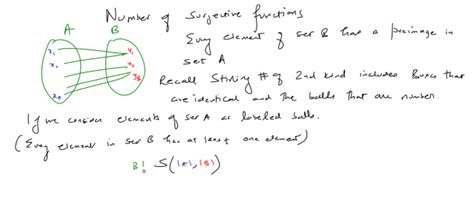 Number of surjective functions
A B
Every element of set B has a preimage in
set A
x₁ y₁
x₂ y₂
y₃
Recall Stirling # of 2nd kind includes Boxes that
are identical and the balls that are number.
If we consider elements of set A as labeled balls.
(Every element in set B has at least one element)
B! S(|A|, |B|)